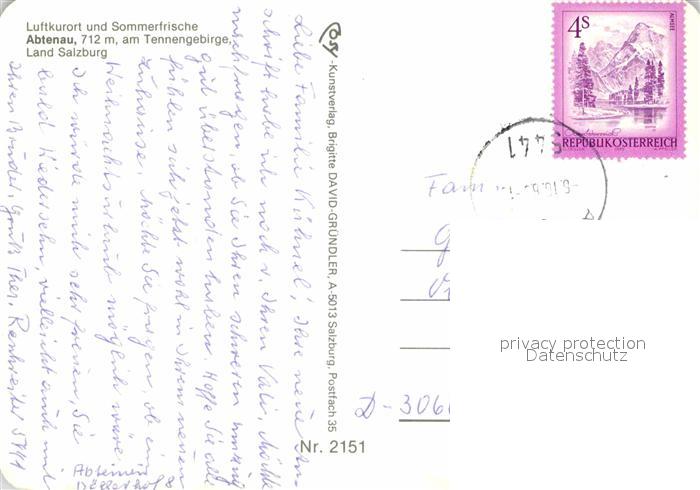 Luftkurort und Sommerfrische
Abtenau, 712 m, am Tennengebirge,
Land Salzburg
Cosy-Kunstverlag, Brigitte DAVID-GRÜNDLER, A-5013 Salzburg, Postfach 35
Nr. 2151
4S
ALMSEE
REPUBLIK ÖSTERREICH
5441
Liebe Familie Kühnel! Ihre neue An-
schrift habe ich noch v. Ihrem Vati, Möchte
nachfragen, ob Sie Ihren schweren Umzug
gut überstanden haben. Hoffe Sie alle
fühlen sich jetzt wohl in Ihrem neuen
Zuhause. Möchte Sie fragen, ob ein
Weihnachtsurlaub möglich wäre.
Ich würde mich sehr freuen, Sie
bald Wiedersehn, vielleicht auch mit
Ihrem Bruder, Gruß Ther. 5441
Fam
D-306
privacy protection
Datenschutz